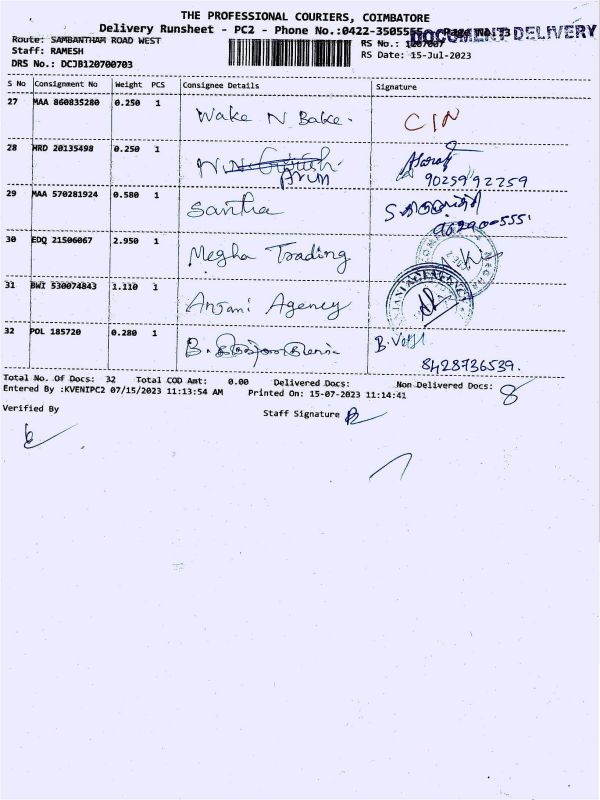 THE PROFESSIONAL COURIERS, COIMBATORE
Delivery Runsheet - PC2 - Phone No.:0422-3505555
DOCUMENT DELIVERY
Route: SAMBANTHAM ROAD WEST
RS No.: 1207007
Staff: RAMESH
RS Date: 15-Jul-2023
DRS No.: DCJB120700703
S No Consignment No Weight PCS Consignee Details Signature
27 MAA 860835280 0.250 1 Wake N Bake.
28 HRD 20135498 0.250 1 Arun
9025992259
29 MAA 570281924 0.580 1 Santha
30 EDQ 21506067 2.950 1 Megha Trading
31 BWI 530074843 1.110 1 Anjani Agency
32 POL 185720 0.280 1 B.
8428736539.
Total No. Of Docs: 32 Total COD Amt: 0.00 Delivered Docs: Non Delivered Docs: 8
Entered By :KVENIPC2 07/15/2023 11:13:54 AM Printed On: 15-07-2023 11:14:41
Verified By Staff Signature